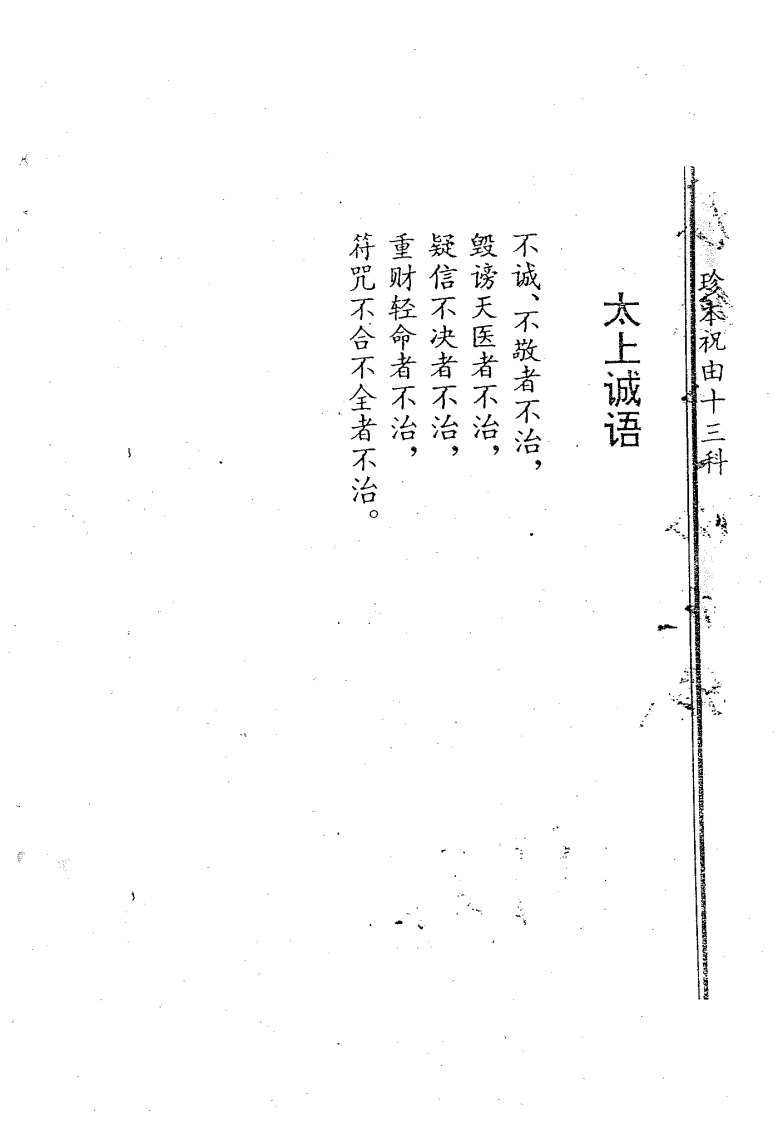 珍本祝由十三科
太上诚语
不诚、不敬者不治，
毁谤天医者不治，
疑信不决者不治，
重财轻命者不治，
符咒不合不全者不治。